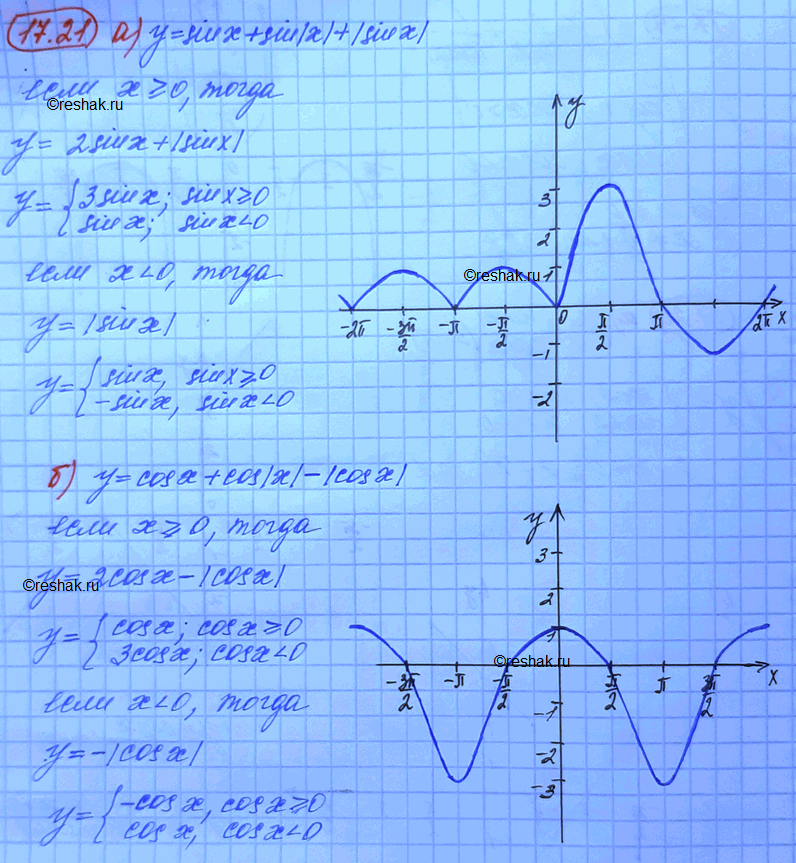 17.21 а) y=sinx+sin|x|+|sinx|
если x≥0, тогда
©reshak.ru
y= 2sinx+|sinx|
y= { 3sinx; sinx≥0
sinx; sinx<0
если x<0, тогда
y=|sinx|
y= { sinx, sinx≥0
-sinx, sinx<0
y
3
2
1
©reshak.ru
-2π -3π/2 -π -π/2 0 π/2 π 2π x
-1
-2
б) y=cosx+cos|x|-|cosx|
если x≥0, тогда
y=2cosx-|cosx|
©reshak.ru
y= { cosx; cosx≥0
3cosx; cosx<0
если x<0, тогда
y=-|cosx|
y= { -cosx, cosx≥0
cosx, cosx<0
y
3
2
1
©reshak.ru
-3π/2 -π -π/2 π/2 π 3π/2 x
-1
-2
-3